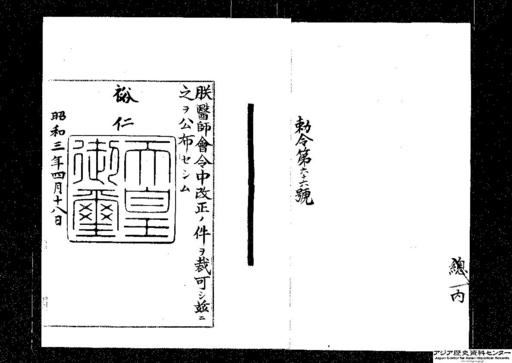 總内
勅令第六十六號
朕醫師會令中改正ノ件ヲ裁可シ茲ニ
之ヲ公布セシム
裕仁
天皇御璽
昭和三年四月十八日
アジア歴史資料センター
Japan Center for Asian Historical Records